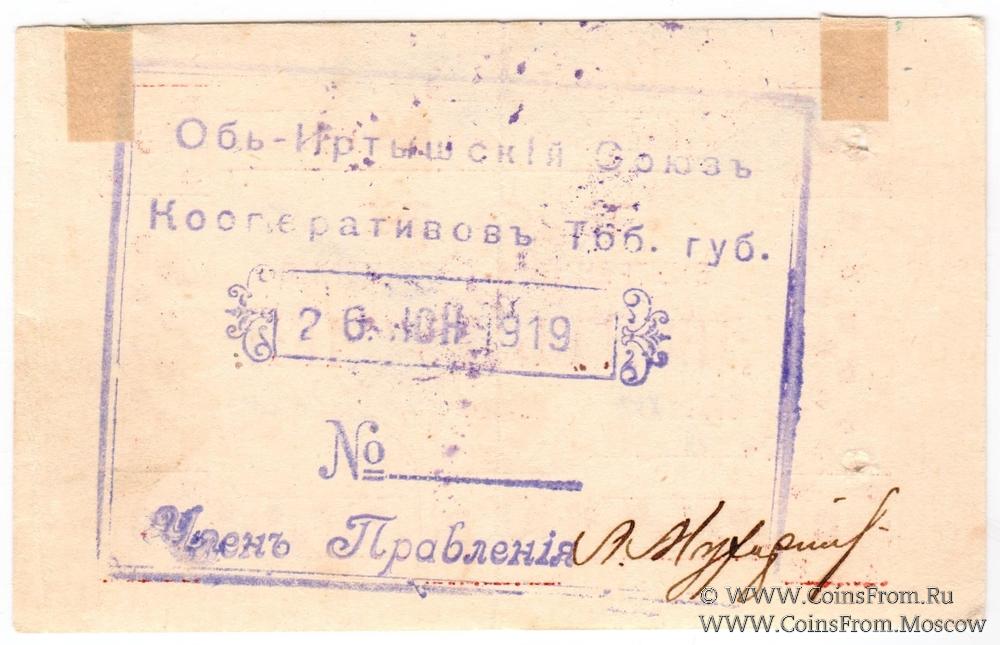 Обь-Иртышскій Союзъ
Кооперативовъ Тоб. губ.
26. ІЮН 1919
№
Членъ Правленія
© WWW.CoinsFrom.Ru
WWW.CoinsFrom.Moscow